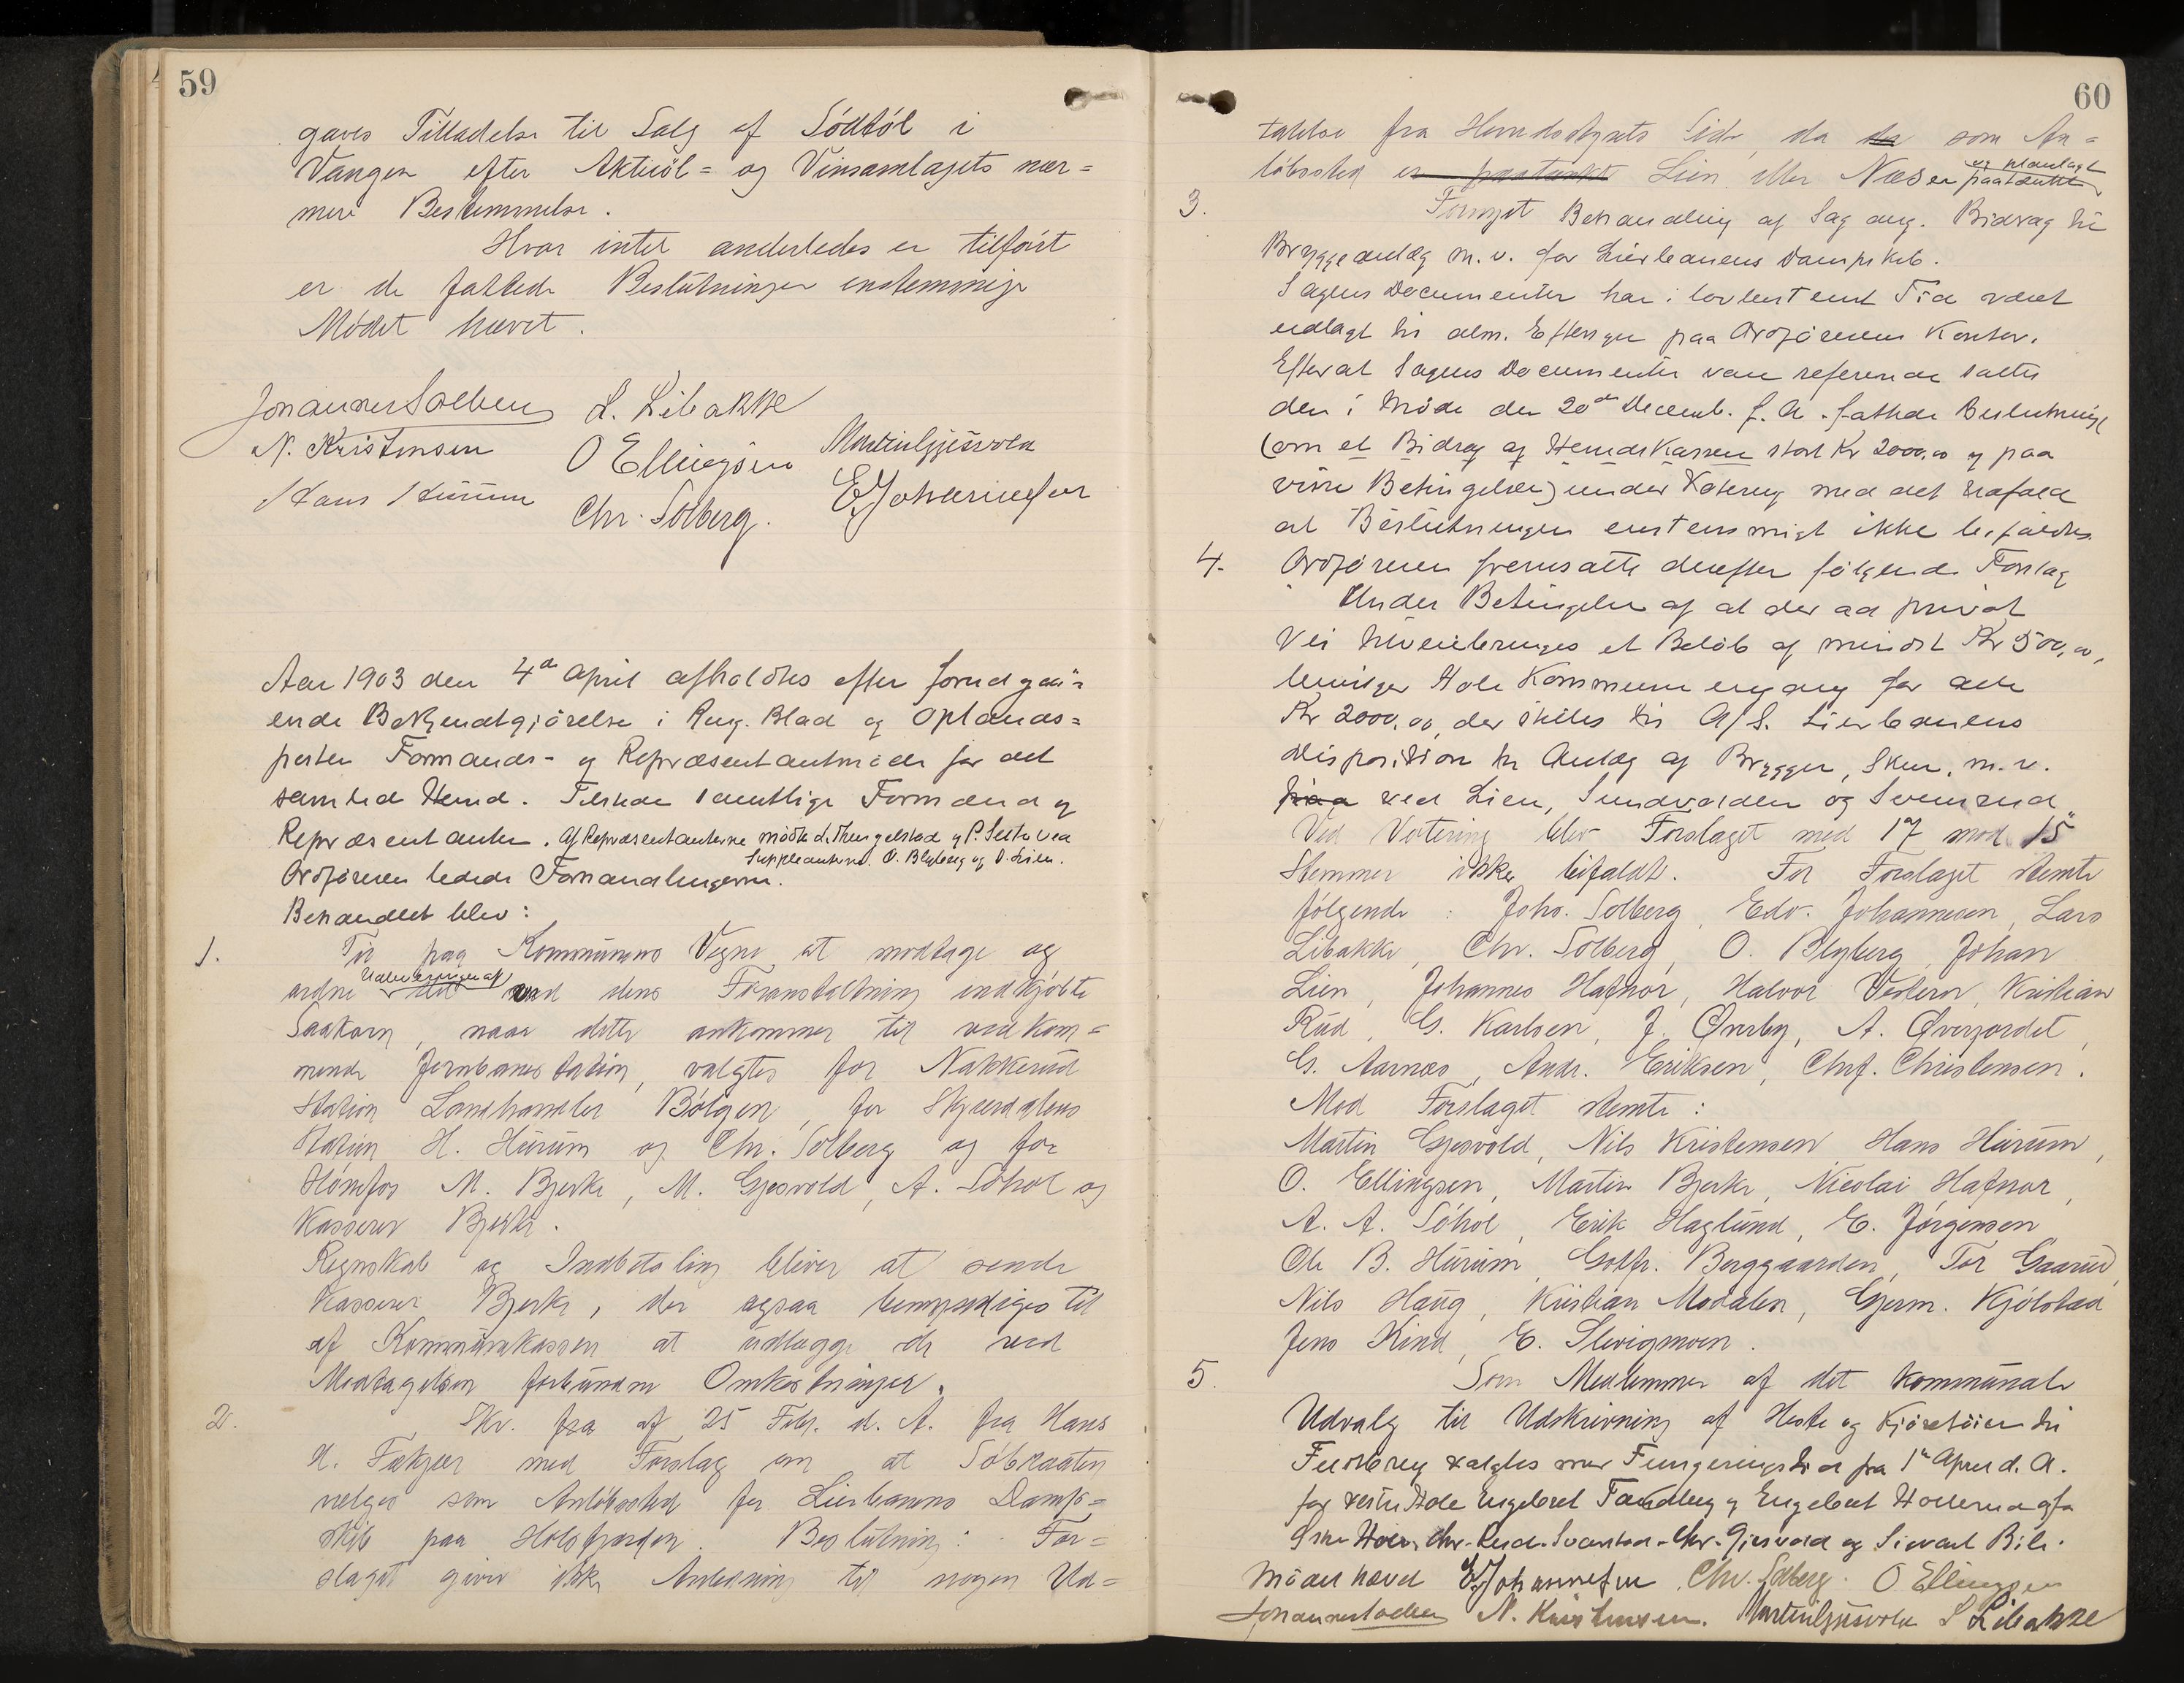 59
gaves Tilladelse til Salg af Södtöl i
Vangen efter Aktieöl= og Vinsamlagets nær=
mere Bestemmelse.
Hvor intet anderledes er tilfört
er de fattede Beslutninger enstemmige
Mödet hævet.
Johannes Solberg L. Libakke
N. Kristensen O Ellingsen Martin Gjesvold
Hans Hurum Chr. Solberg. E Johannesen
Aar 1903 den 4de April afholdtes efter forudgaa=
ende Bekjendtgjörelse i Ring. Blad og Oplands=
posten Formands- og Repræsentantmöde for det
samlede Herred. Tilstede samtlige Formænd og
Repræsentanter. Af Repræsentanterne mödte L. Thengelstad og P. Sæter ved
Suppleanterne O. Blyberg og J. Lien.
Ordföreren ledede Forhandlingerne.
Behandlet blev:
1. Til paa Kommunens Vegne at modtage og
ordne Udleveringen af det ved dens Foranstaltning indkjöbte
Saakorn, naar dette ankommer til vedkom=
mende Jernbanestation, valgtes for Nakkerud
Station Landhandler Bölgen, for Skjærdalens
Station H. Hurum og Chr. Solberg og for
Hönefos M. Bjerke, M. Gjesvold, A. Söhol og
Kasserer Bjerke.
Regnskab og Indbetaling bliver at sende
Kasserer Bjerke, der ogsaa bemyndiges til
af Kommunekassen at udlægge de ved
Modtagelsen forbundne Omkostninger.
2. Skr. fra af 25 Febr. d. A. fra Hans
H. Fækjær med Forslag om at Söbraaten
vælges som Anlöbssted for Lierbanens Damp=
skib paa Holsfjorden. Beslutning: For=
slaget giver ikke Anledning til nogen Ud=
60
talelse fra Herredsstyrets Side, da der som An=
löbssted er paatænkt Lien eller Næs er paatænkt er planlagt
3. Fornyet Behandling af Sag ang. Bidrag til
Bryggeanlæg m. v. for Lierbanens Dampskib.
Sagens Documenter har i lovbestemt Tid været
udlagt til alm. Eftersyn paa Ordförerens Kontor.
Efterat Sagens Documenter vare refererede sattes
den i Möde den 20de Decemb. f. A. fattede Beslutning
(om et Bidrag af Herredskassen stort Kr 2000,00 og paa
visse Betingelser) under Votering med det Udfald
at Beslutningen enstemmigt ikke bifaldtes.
4. Ordföreren fremsatte derefter fölgende Forslag
Under Betingelse af at der ad privat
Vei tilveiebringes et Belöb af mindst Kr 500,00,
bevilger Hole Kommune engang for alle
Kr 2000,00, der stilles til A/S. Lierbanens
Disposition til Anlæg af Brygger, Skur, m. v.
paa ved Lien, Sundvolden og Svensrud"
Ved Votering blev Forslaget med 17 mod 15
Stemmer ikke bifaldt. For Forslaget stemte
fölgende: Johs. Solberg, Edv. Johannesen, Lars
Libakke, Chr. Solberg, O. Blyberg, Johan
Lien, Johannes Hafnor, Halvor Vestern, Kristian
Rud, G. Karlsen, J. Øverby, A. Øverjordet,
G. Aarnæs, Andr. Eriksen, Chrf. Christensen.
Mod Forslaget stemte:
Martin Gjesvold, Nils Kristensen, Hans Hurum,
O. Ellingsen, Martin Bjerke, Nicolai Hafnor,
A. A. Söhol, Erik Haglund, E. Jörgensen
Ole B. Hurum, Gotfr. Borggaarden, Tor Gaarud,
Nils Haug, Kristian Modalen, Gjerm. Kjölstad
Jens Rind, E. Slevigmoen.
5. Som Medlemmer af det kommunale
Udvalg til Udskrivning af Heste og Kjöretöier til
Feltbrug valgtes med Fungeringstid fra 1ste April d. A.
for vestre Hole Engebret Tandberg og Engebret Hollerud og for
östre Hole, Chr. Rud. Svarstad. Chr. Gjesvold og Sievart Bili.
Mödet hævet E Johannesen Chr. Solberg. O Ellingsen
Johannes Solberg N. Kristensen. Martin Gjesvold L Libakke